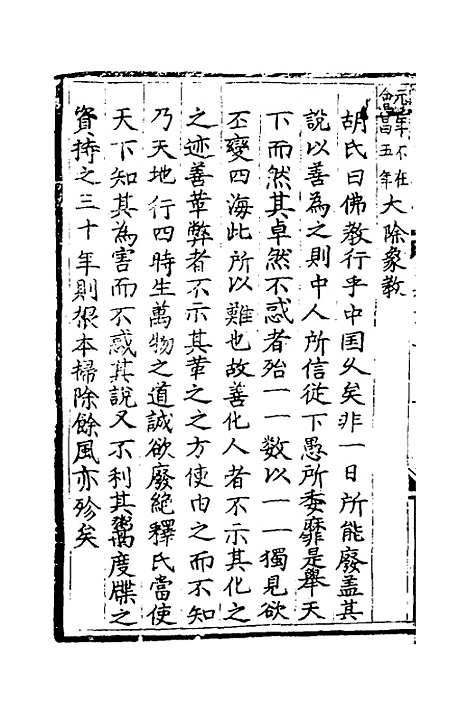 元年不在
會昌五年大除象教
胡氏曰佛教行乎中国久矣非一日所能廢盖其
說以善為之則中人所信從下愚所委靡是舉天
下而然其卓然不惑者殆一一數以一一獨見欲
丕變四海此所以難也故善化人者不示其化之
之迹善革弊者不示其革之之方使由之而不知
乃天地行四時生萬物之道誠欲廢絶釋氏當使
天下知其為害而不惑其說又不利其鬻度牒之
資持之三十年則根本掃除餘風亦殄矣